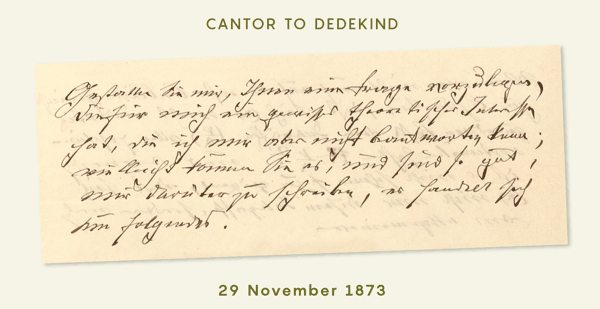 CANTOR TO DEDEKIND
Gestatten Sie mir, Ihnen eine Frage vorzulegen,
die für mich ein gewisses theoretisches Interesse
hat, die ich mir aber nicht beantworten kann;
vielleicht können Sie es, und sind so gut,
mir darüber zu schreiben, es handelt sich
um folgendes.
29 November 1873